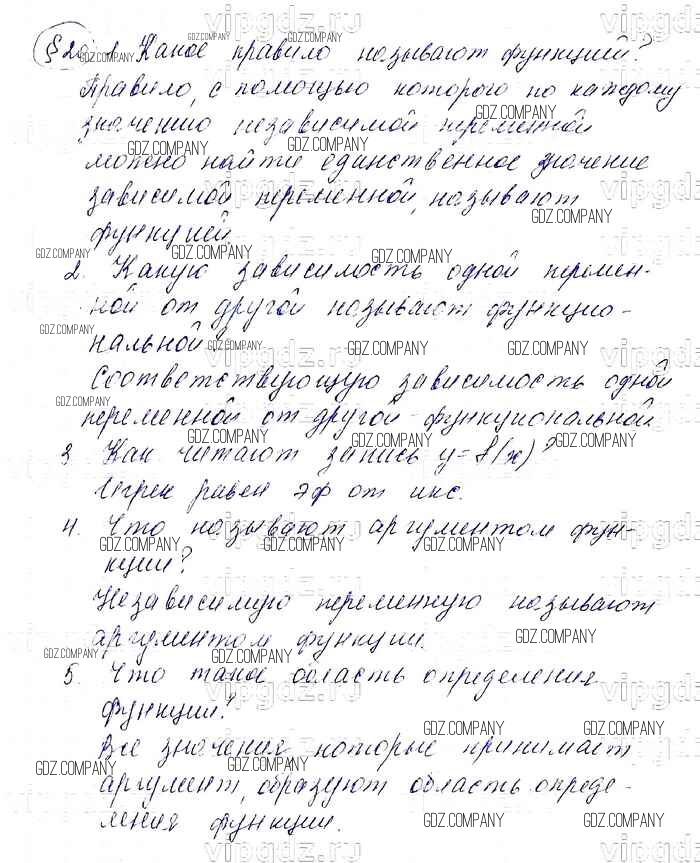 § 20. 1. Какое правило называют функцией?
Правило, с помощью которого по каждому
значению независимой переменной
можно найти единственное значение
зависимой переменной, называют
функцией.
2. Какую зависимость одной перемен-
ной от другой называют функцио-
нальной?
Соответствующую зависимость одной
переменной от другой - функциональной
3 Как читают запись y = f(x)?
Игрек равен эф от икс.
4. Что называют аргументом фун-
кции?
Независимую переменную называют
аргументом функции.
5. Что такое область определения
функции?
Все значения которые принимает
аргумент, образуют область опреде-
ления функции.